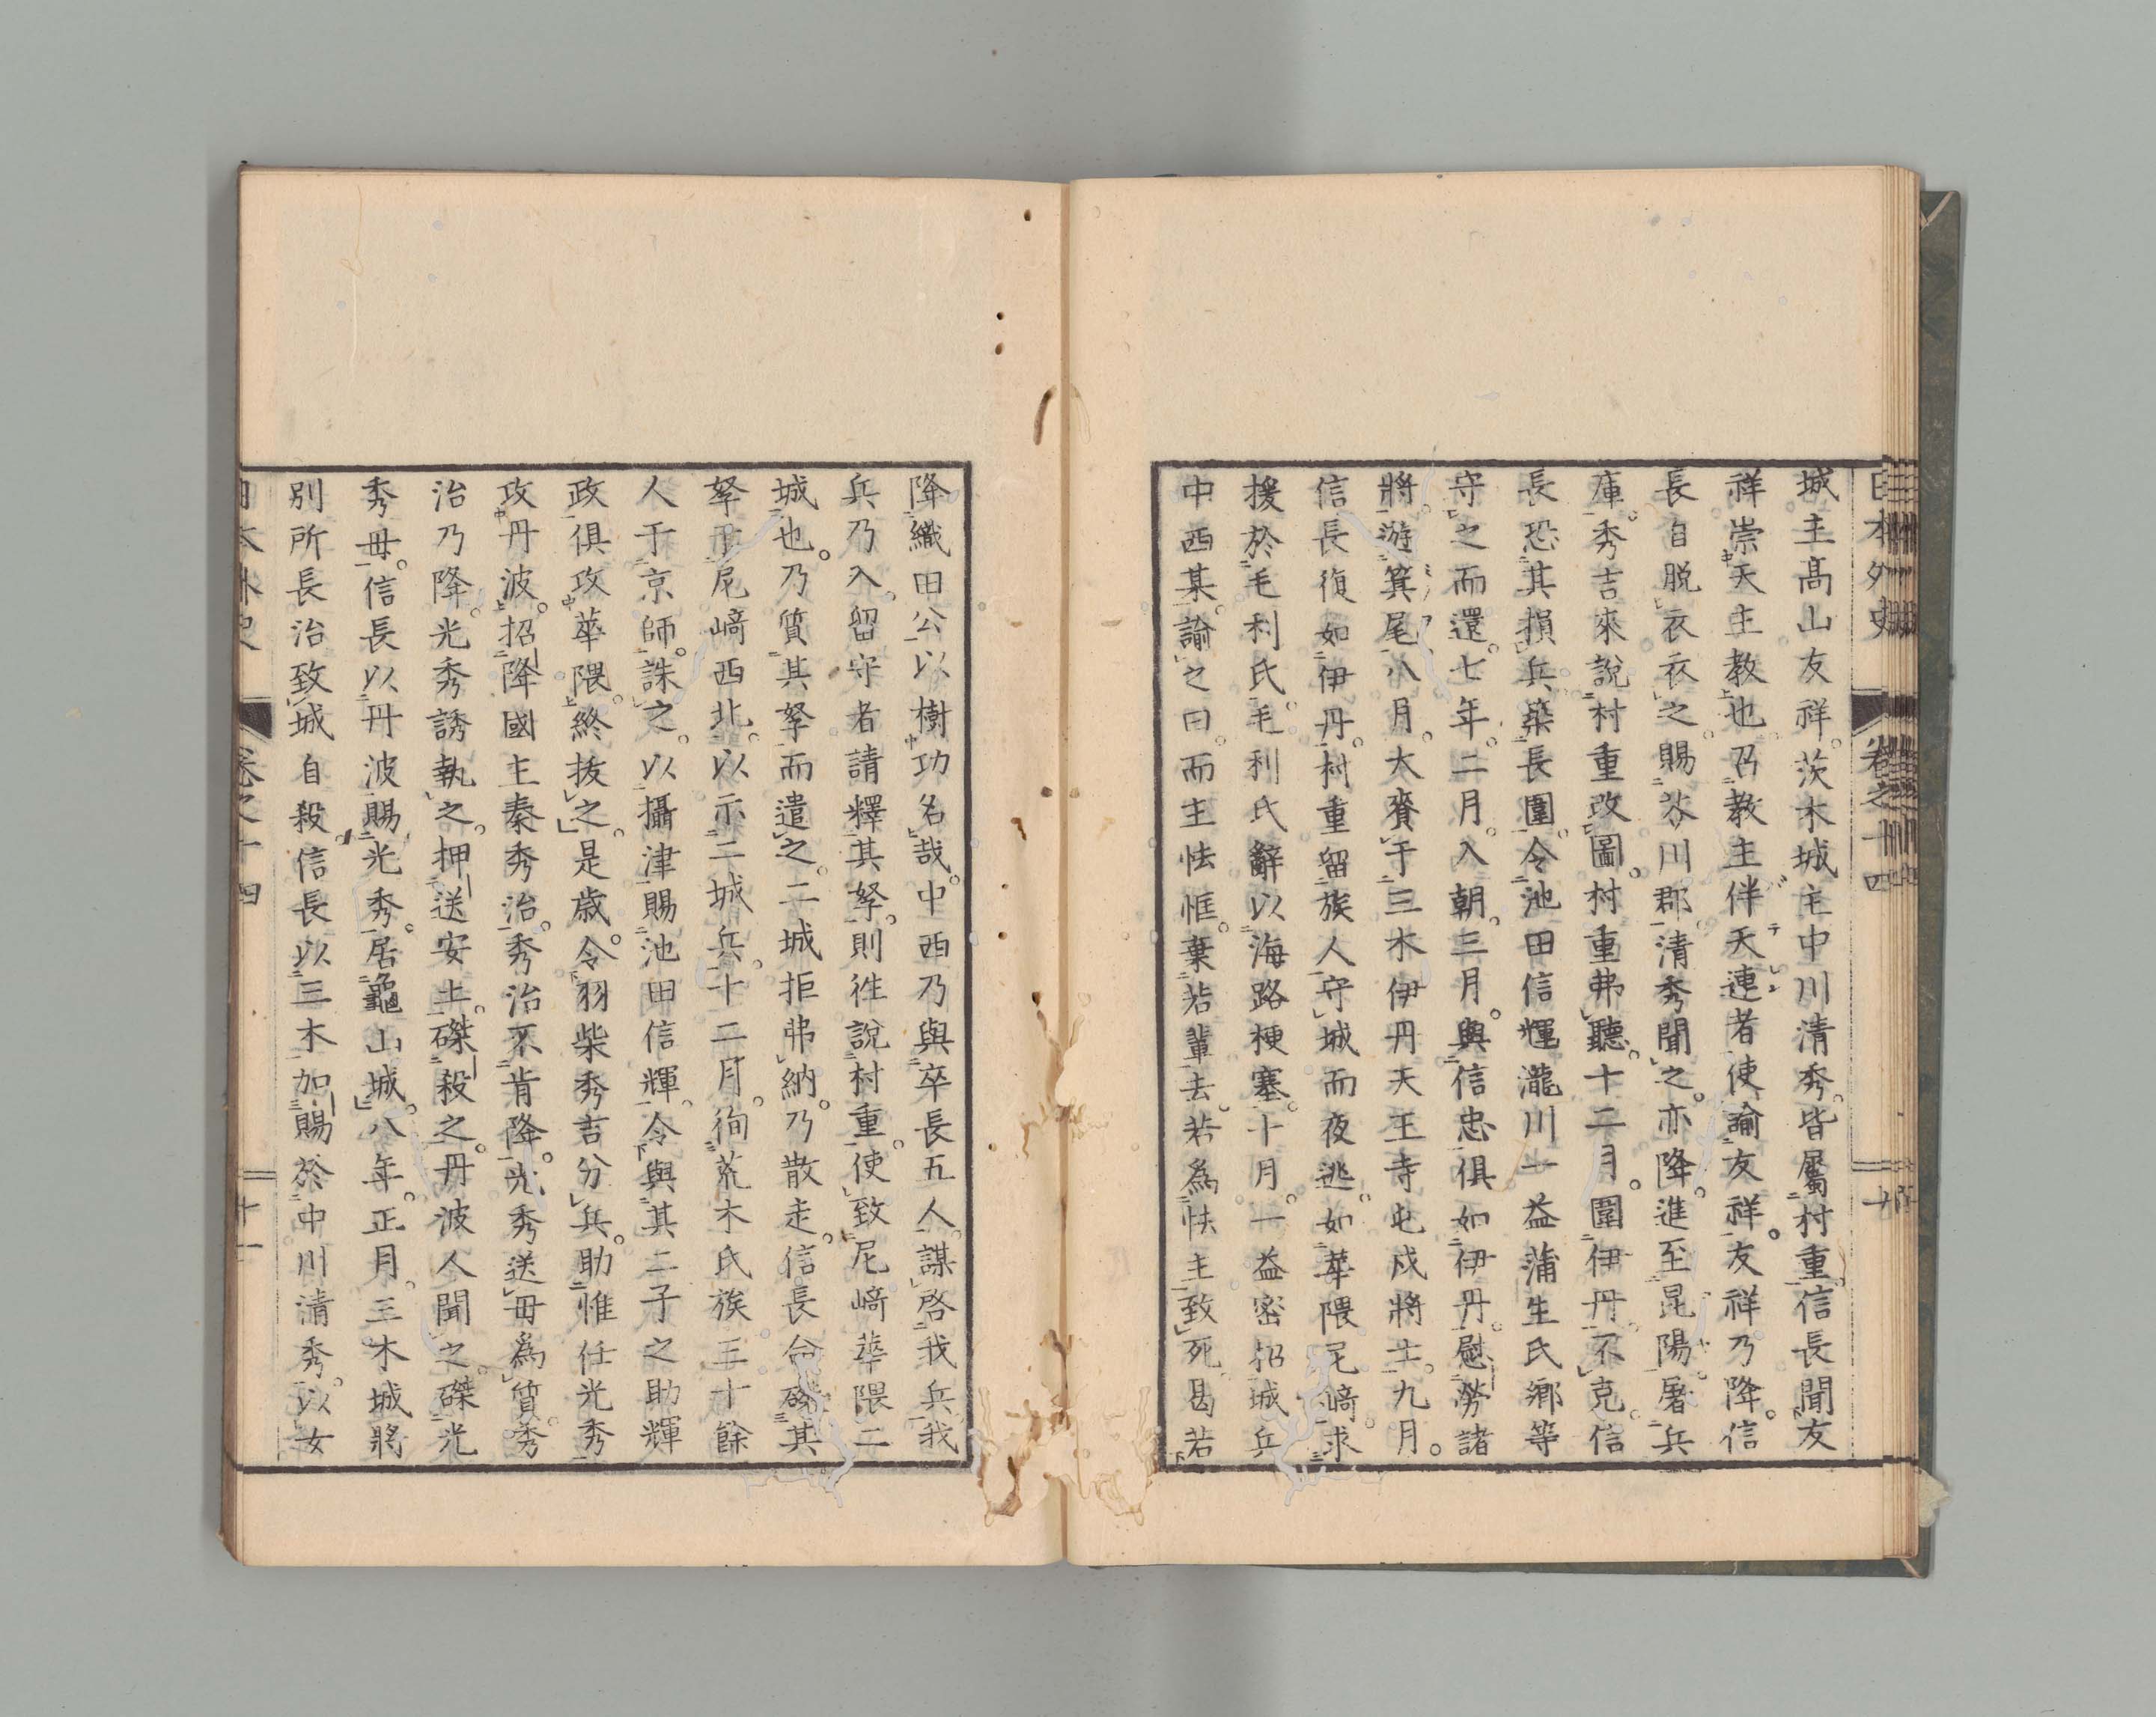 日本外史 卷之十四 十
城主高山友祥。茨木城主中川清秀。皆屬村重。信長聞友
祥崇天主教也。召教主伴天連者使諭友祥。友祥乃降。信
長自脱衣衣之。賜芥川郡。清秀聞之。亦降。進至昆陽。署兵
庫。秀吉來說村重改圖。村重弗聽。十二月。圍伊丹。不克。信
長恐其損兵。築長圍。令池田信輝瀧川一益蒲生氏鄉等
守之而還。七年。二月。入朝。三月。與信忠俱如伊丹。慰勞諸
將。游箕尾。八月。大賚于三木伊丹天王寺屯戍將士。九月。
信長復如伊丹。村重留族人守城而夜逃。如華隈尼﨑。求
援於毛利氏。毛利氏辭以海路梗塞。十月。一益密招城兵
中西某。諭之曰。而主怯恇。棄若輩去。若為怯主致死。曷若
降織田公以樹功名哉。中西乃與卒長五人謀。啓我兵。我
兵乃入。留守者請釋其孥。則徃說村重。使致尼﨑華隈二
城也。乃質其孥而遣之。二城拒弗納。乃散走。信長命磔其
孥于尼﨑西北。以示二城兵。十二月。徇荒木氏族三十餘
人于京師。誅之。以攝津賜池田信輝。令與其二子之助輝
政俱攻華隈。終拔之。是歲。令羽柴秀吉分兵。助惟任光秀
攻丹波。招降國主秦秀治。秀治不肯降。光秀送母為質。秀
治乃降。光秀誘執之。押送安土。磔殺之。丹波人聞之。磔光
秀母。信長以丹波賜光秀。居龜山城。八年。正月。三木城將
別所長治致城自殺。信長以三木加賜於中川清秀。以女
日本外史 卷之十四 十一